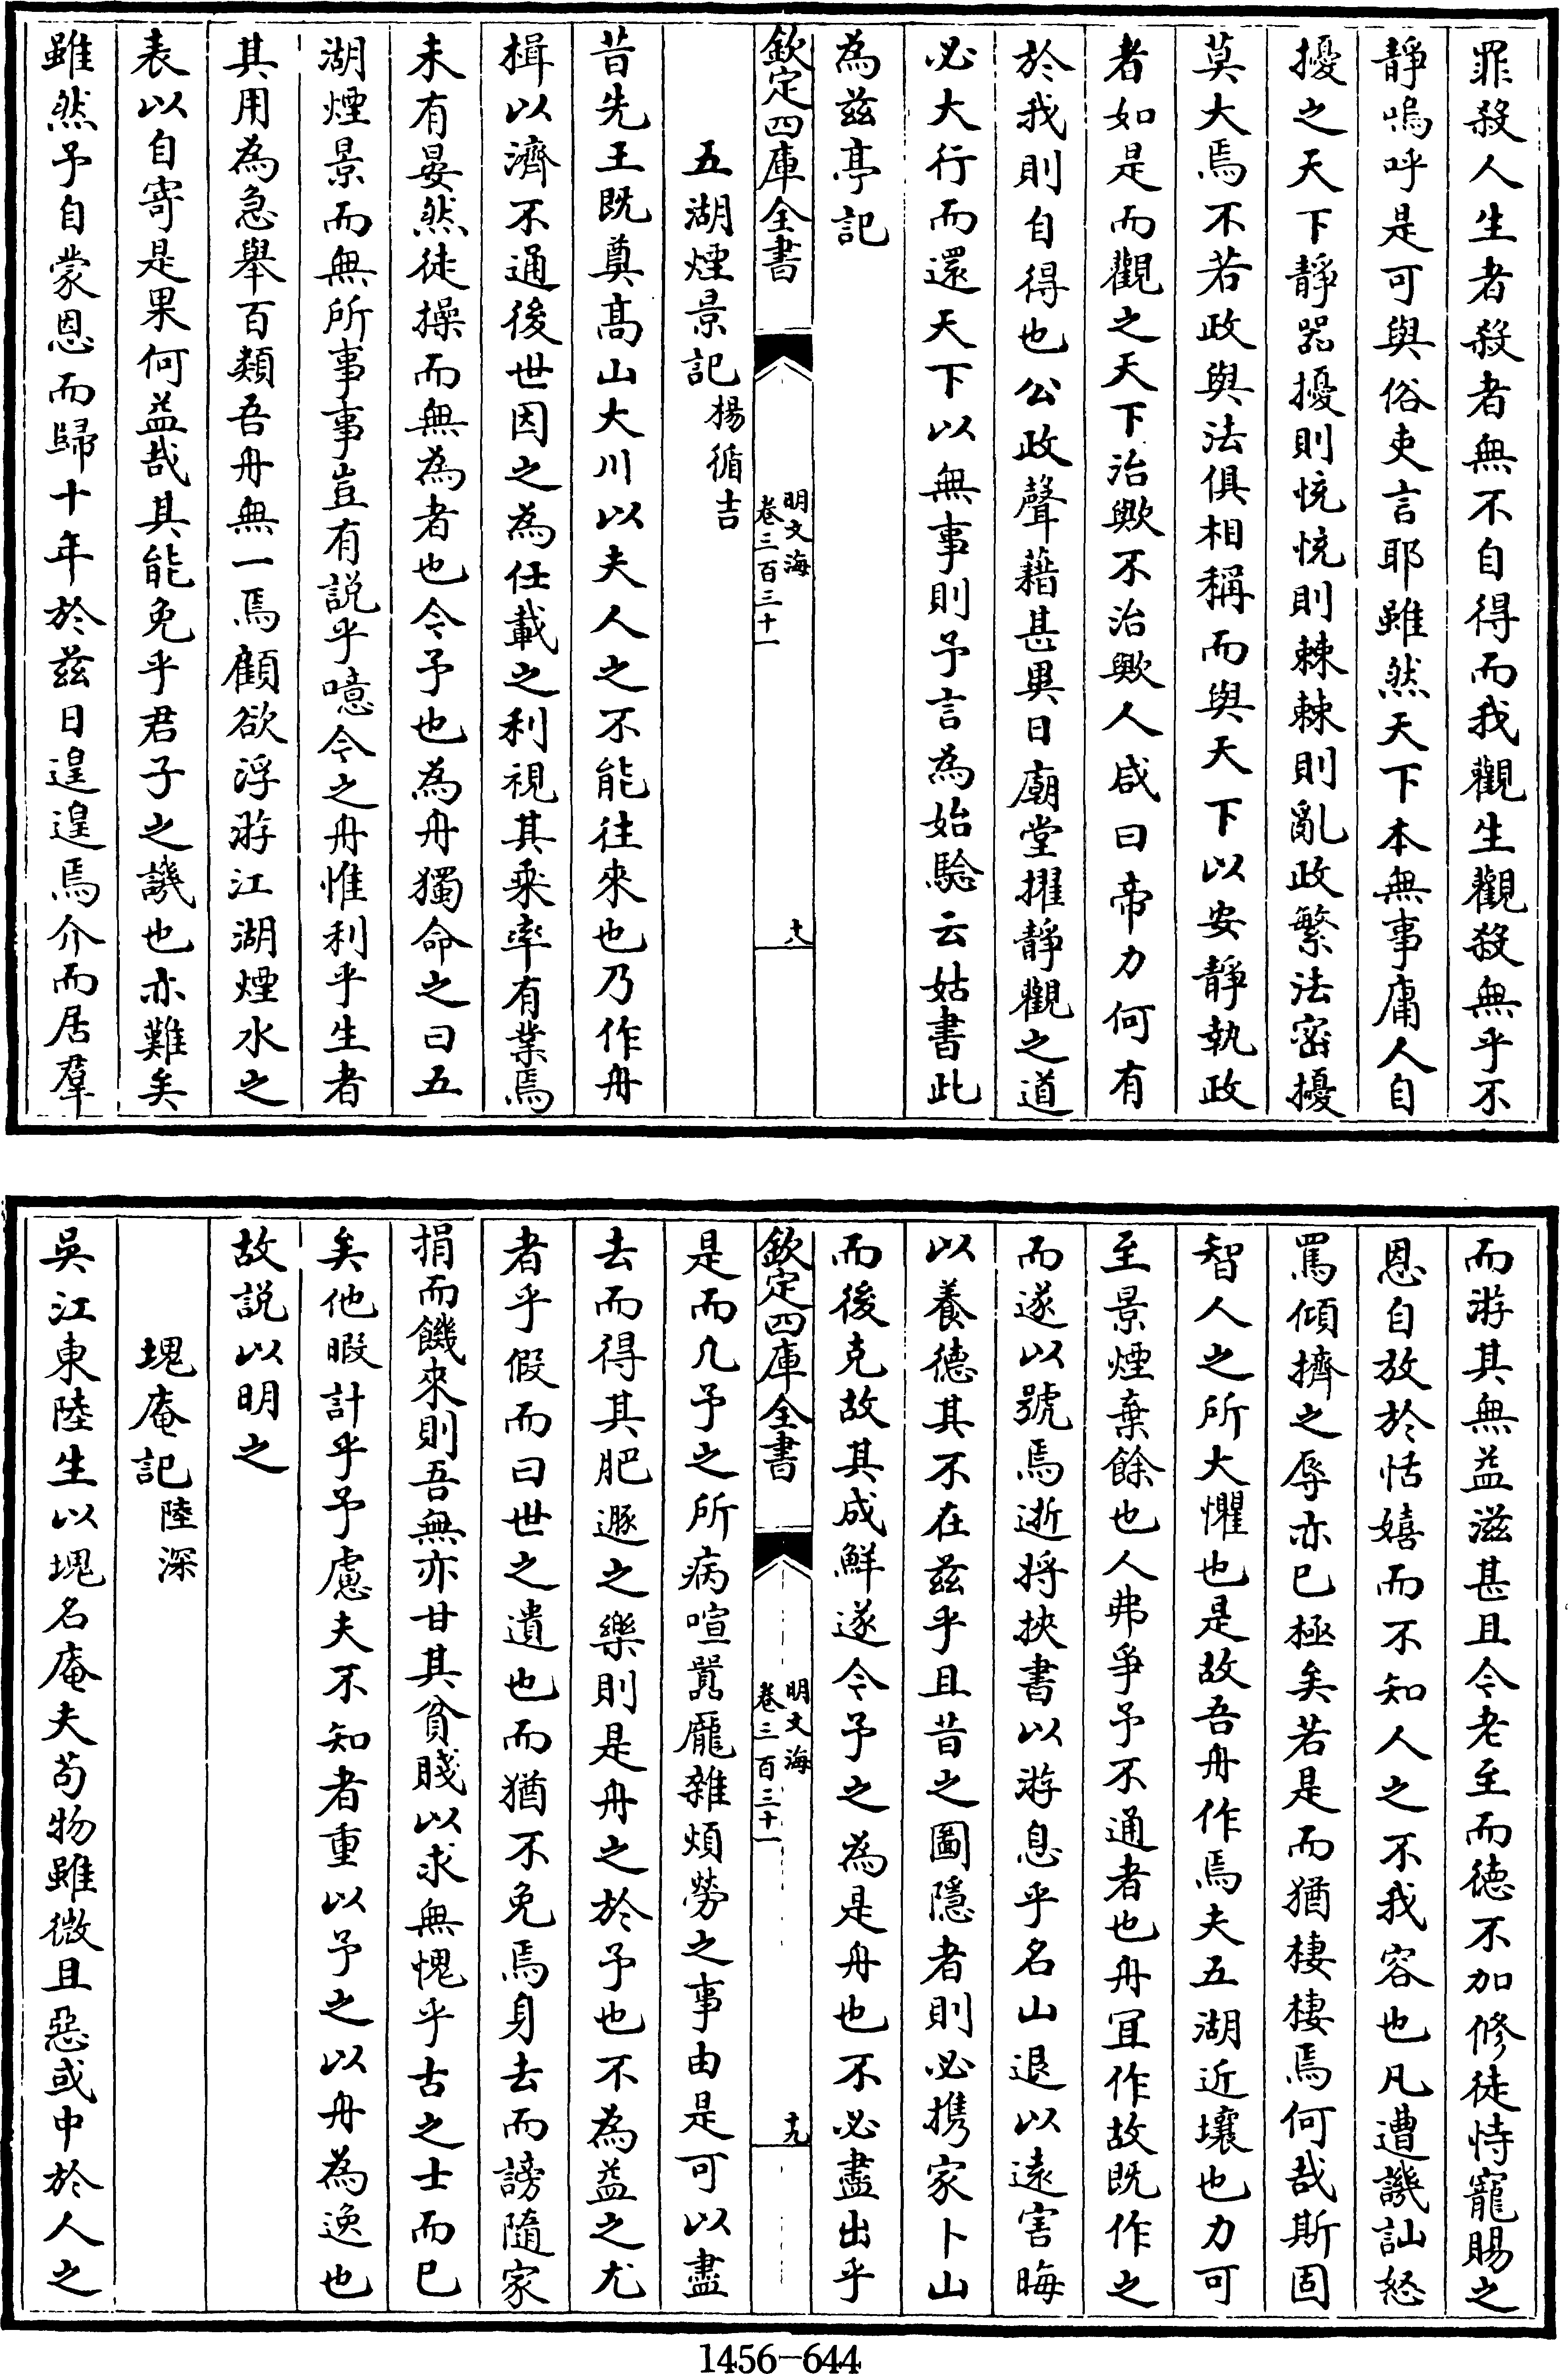 罪殺人生者殺者無不自得而我觀生觀殺無乎不
靜嗚呼是可與俗吏言耶雖然天下本無事庸人自
擾之天下靜器擾則恍恍則棘棘則亂政繁法密擾
莫大焉不若政與法俱相稱而與天下以安靜執政
者如是而觀之天下治歟不治歟人咸曰帝力何有
於我則自得也公政聲藉甚異日廟堂擢靜觀之道
必大行而還天下以無事則予言為始驗云姑書此
為兹亭記
欽定四庫全書
明文海
卷三百三十一
十八
五湖煙景記楊循吉
昔先王既奠高山大川以夫人之不能往來也乃作舟
楫以濟不通後世因之為任載之利視其乘率有業焉
未有晏然徒操而無為者也今予也為舟獨命之曰五
湖煙景而無所事事豈有説乎噫今之舟惟利乎生者
其用為急舉百類吾舟無一焉顧欲浮游江湖煙水之
表以自寄是果何益哉其能免乎君子之譏也亦難矣
雖然予自蒙恩而歸十年於兹日遑遑焉介而居羣
而游其無益滋甚且今老至而德不加修徒恃寵賜之
恩自放於恬嬉而不知人之不我容也凡遭譏訕怒
罵傾擠之辱亦已極矣若是而猶棲棲焉何哉斯固
智人之所大懼也是故吾舟作焉夫五湖近壤也力可
至景煙棄餘也人弗爭予不通者也舟宜作故既作之
而遂以號焉逝將挾書以游息乎名山退以遠害晦
以養德其不在兹乎且昔之圖隱者則必携家卜山
而後克故其成鮮遂今予之為是舟也不必盡出乎
欽定四庫全書
明文海
卷三百三十一
十九
是而凡予之所病喧囂龎雜煩勞之事由是可以盡
去而得其肥遯之樂則是舟之於予也不為益之尤
者乎假而曰世之遺也而猶不免焉身去而謗隨家
捐而饑來則吾無亦甘其貧賤以求無愧乎古之士而已
矣他暇計乎予慮夫不知者重以予之以舟為逸也
故説以明之
塊庵記陸深
吳江東陸生以塊名庵夫茍物雖微且惡或中於人之
1456-644